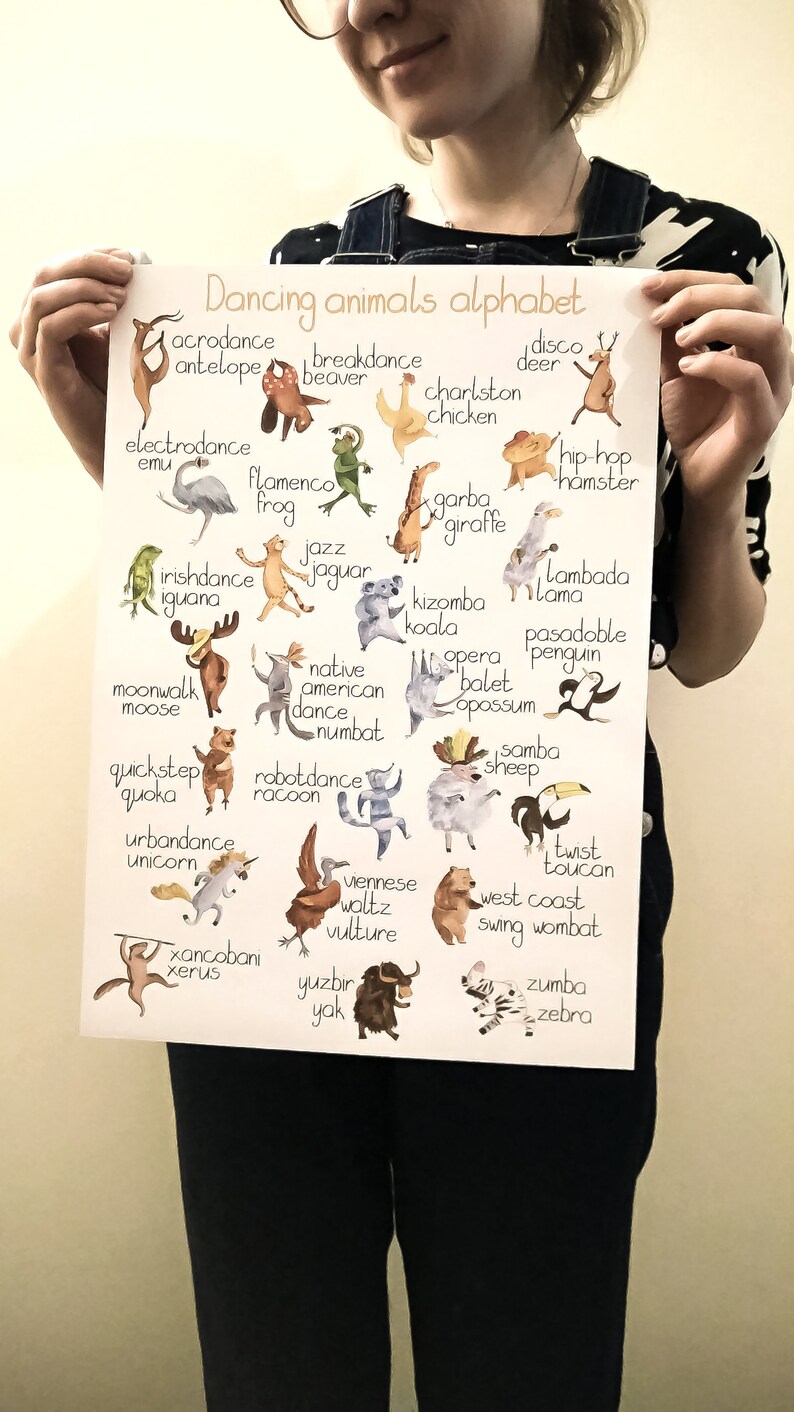 Dancing animals alphabet
acrodance
antelope
breakdance
beaver
charlston
chicken
disco
deer
electrodance
emu
flamenco
frog
garba
giraffe
hip-hop
hamster
irishdance
iguana
jazz
jaguar
kizomba
koala
lambada
lama
moonwalk
moose
native
american
dance
numbat
opera
balet
opossum
pasadoble
penguin
quickstep
quoka
robotdance
racoon
samba
sheep
twist
toucan
urbandance
unicorn
viennese
waltz
vulture
west coast
swing wombat
xancobani
xerus
yuzbir
yak
zumba
zebra